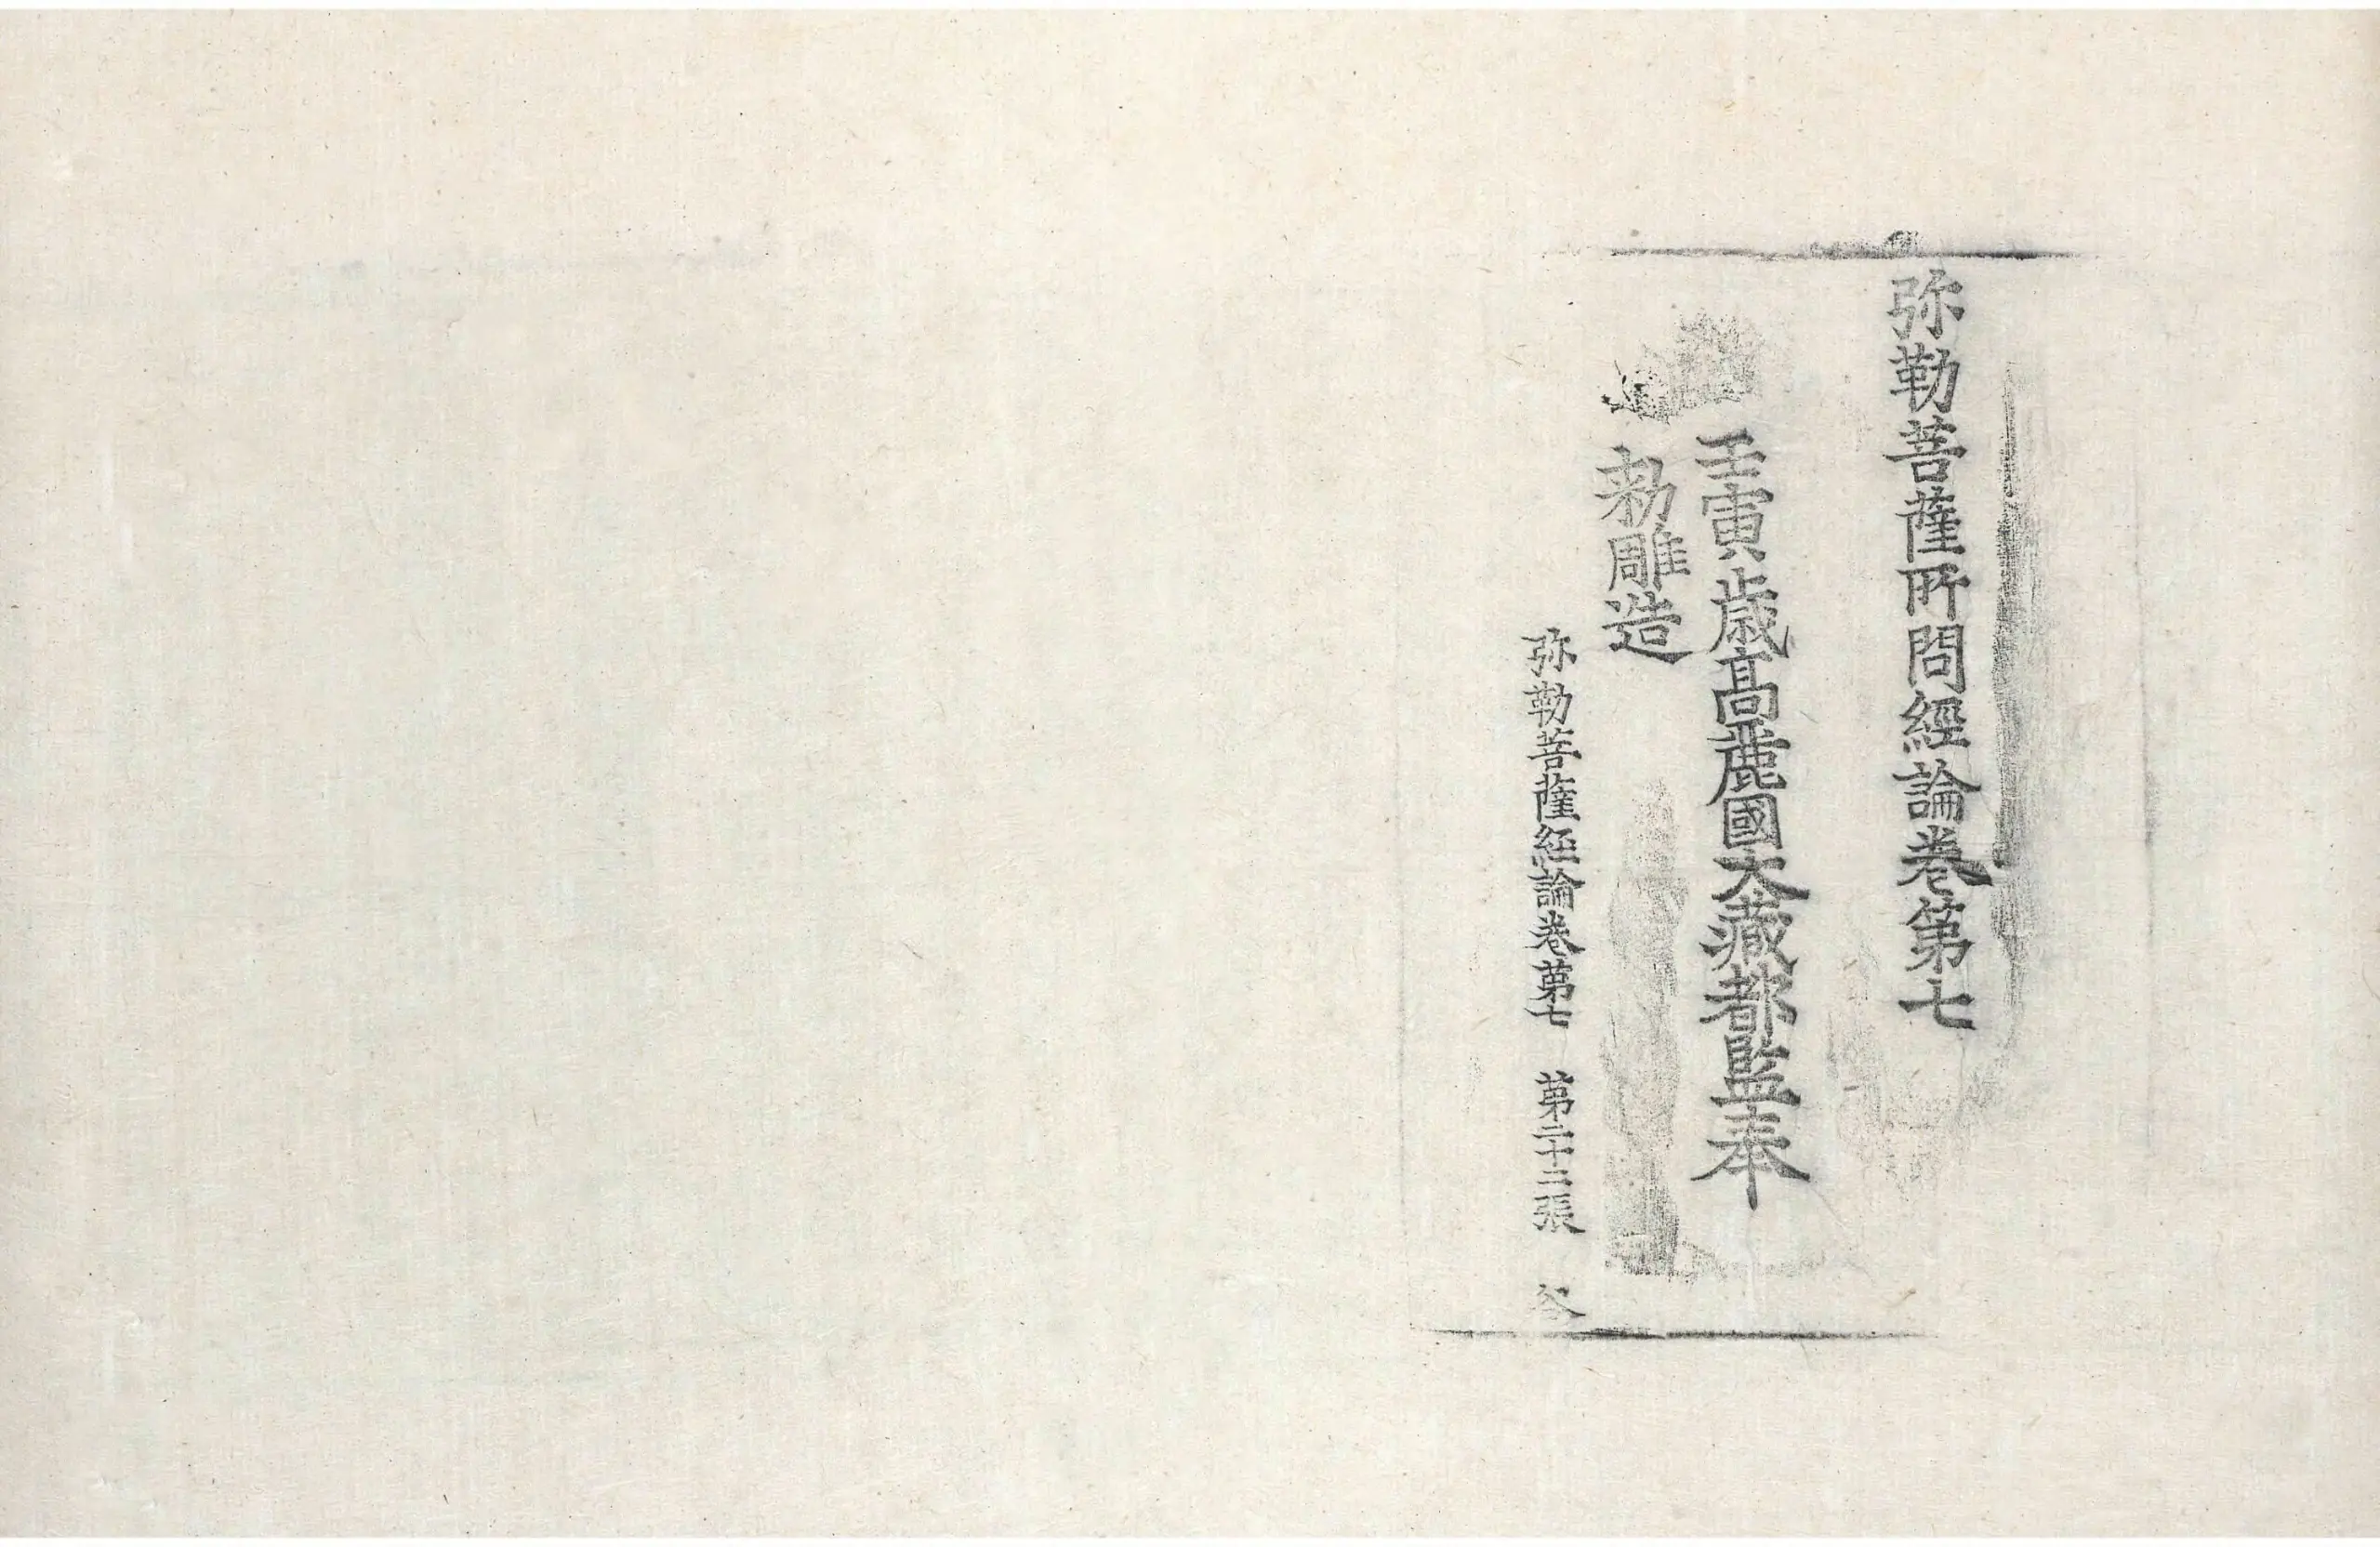 弥勒菩薩所問經論卷第七
壬寅歲高麗國大藏都監奉
勑雕造
弥勒菩薩經論卷第七 第二十三張